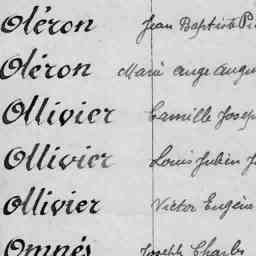 Oléron Jean Baptiste
Oléron Marie Ange
Ollivier Camille Joseph
Ollivier Louis Julien
Ollivier Victor Eugène
Omnés Joseph Charles